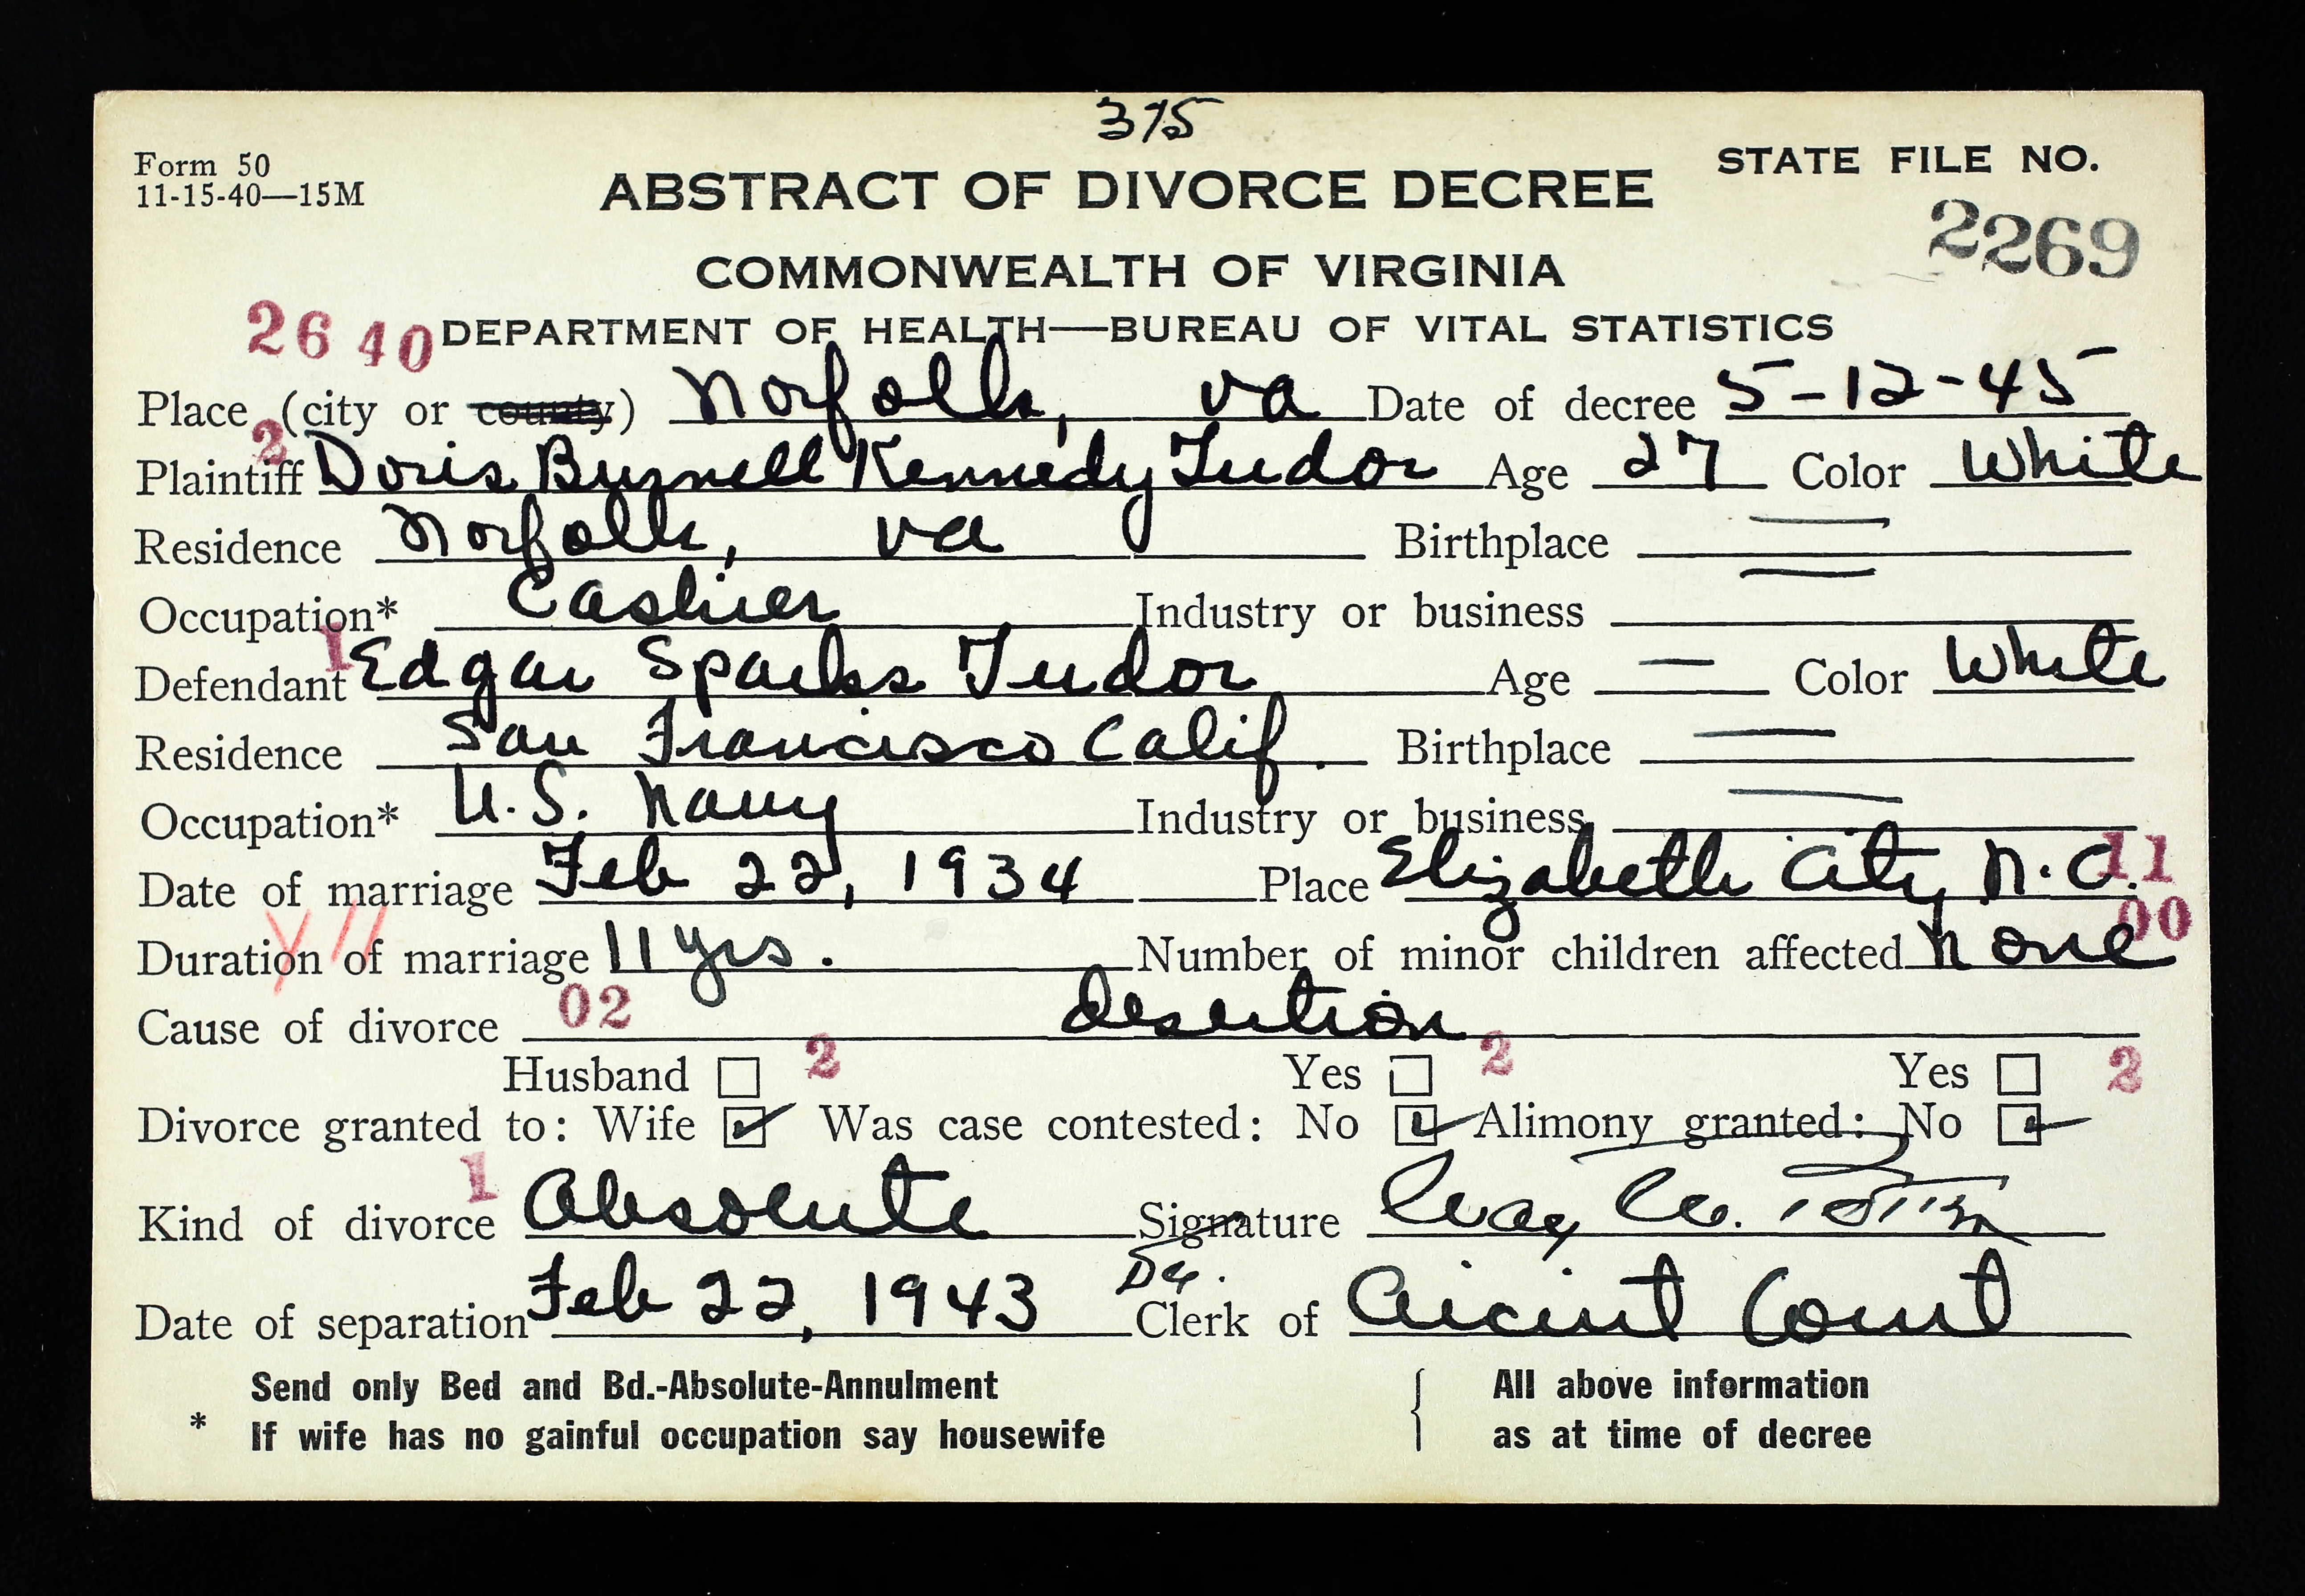 375
Form 50
11-15-40—15M
STATE FILE NO.
ABSTRACT OF DIVORCE DECREE
2269
COMMONWEALTH OF VIRGINIA
26 40 DEPARTMENT OF HEALTH—BUREAU OF VITAL STATISTICS
Place (city or county) Norfolk, Va Date of decree 5-12-45
2
Plaintiff Doris Burnell Kennedy Tudor Age 27 Color White
Residence Norfolk, Va Birthplace —
Occupation* Cashier Industry or business —
1
Defendant Edgar Sparks Tudor Age — Color White
Residence San Francisco Calif. Birthplace —
Occupation* U.S. Navy Industry or business —
Date of marriage Feb 22, 1934 Place Elizabeth City N.C. 11
00
Duration of marriage 11 yrs. Number of minor children affected None
Cause of divorce 02 desertion
Husband 2 Yes 2 Yes 2
Divorce granted to: Wife ✓ Was case contested: No ✓ Alimony granted: No ✓
1
Kind of divorce Absolute Signature
Date of separation Feb 22, 1943 Clerk of Circuit Court
Send only Bed and Bd.-Absolute-Annulment
* If wife has no gainful occupation say housewife
All above information
as at time of decree